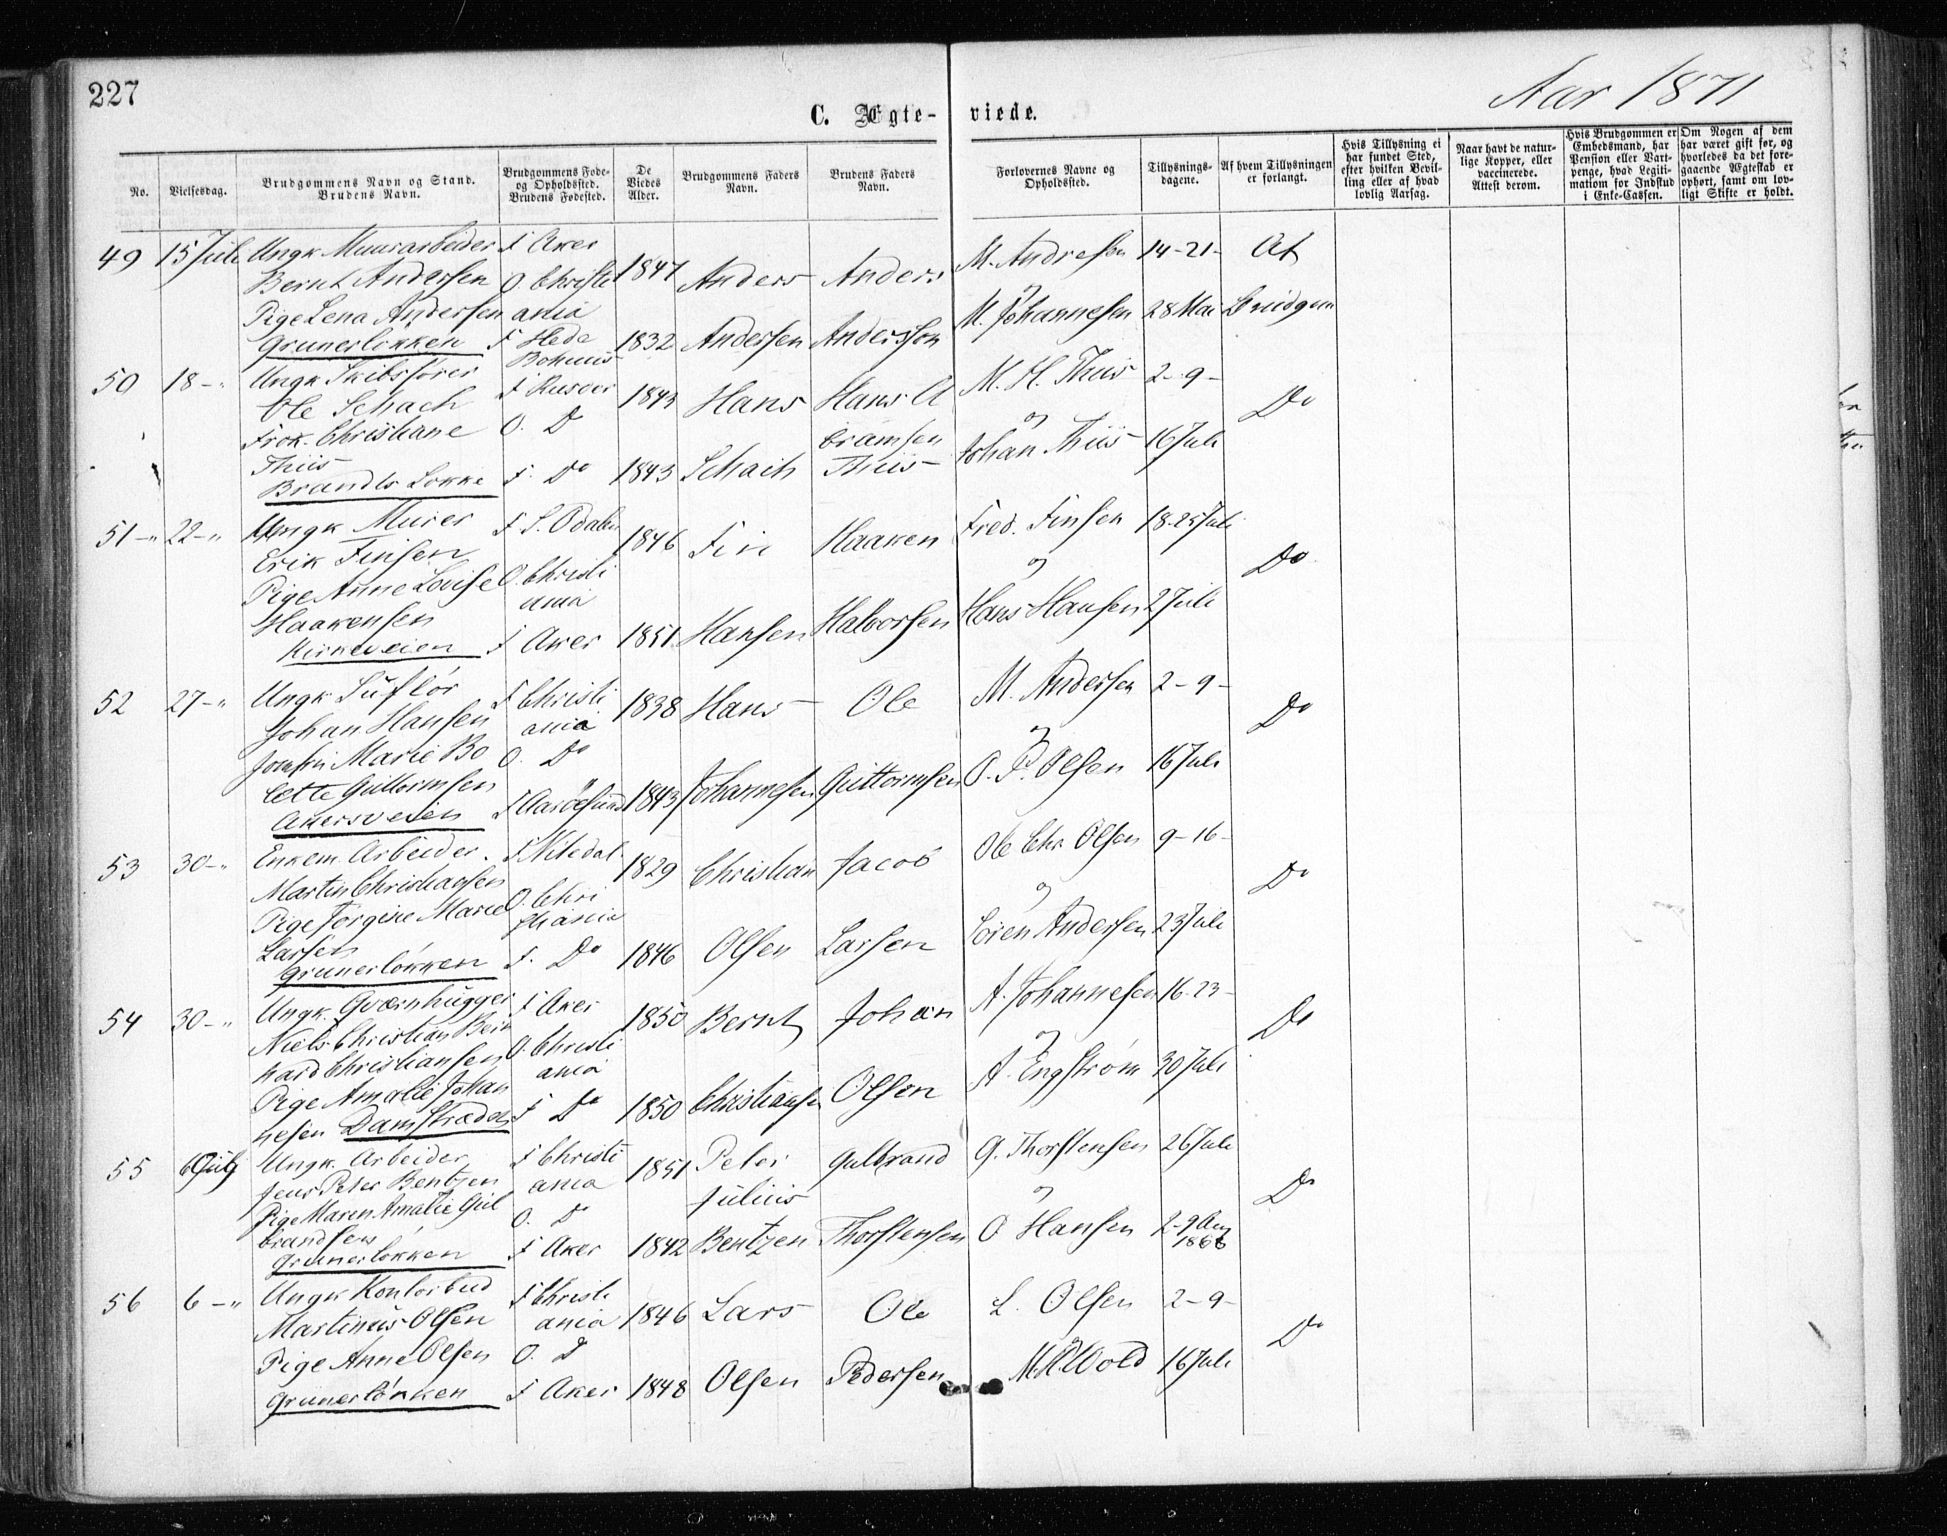 227
Aar 1871
C. Ægte- viede.
No.
Vielsesdag.
Brudgommens Navn og Stand. Brudens Navn.
Brudgommens Føde- og Opholdssted. Brudens Fødested.
De Viedes Alder.
Brudgommens Faders Navn.
Brudens Faders Navn.
Forlovernes Navne og Opholdssted.
Tillysnings-dagene.
Af hvem Tillysningen er forlangt.
Hvis Tillysning ei har fundet Sted, efter hvilken Bevilling eller af hvad lovlig Aarsag.
Naar havt de naturlige Kopper, eller vaccinerede. Attest derom.
Hvis Brudgommen er Embedsmand, har Pension eller Vartpenge, hvad Legitimation for Indskud i Enke-Cassen.
Om Nogen af dem har været gift før, og hvorledes da det foregaaende Ægteskab er ophørt, samt om lovligt Skifte er holdt.
49 15 Juli Ungk Muurarbeider F Aker 1847 Anders Anders M. Andresen 14-21- Af
Bernt Andersen O. Christi
Pige Lena Andersen ania og M. Johannesen 28 Mai Brudgom
Grunerløkken F Hede 1832 Andersen Andersson
Bohuus
50 18-" Ungk Skibsfører F Rusøer 1843 Hans Hans A M. H. Thiis 2-9- Do
Ole Schach
Frøk. Christiane O. D bramsen og
Thiis F. Do 1843 Schach Thiis Johan Thiis 16 Juli
Brandts Løkke
51-" 22-" Ungk Murer F S. Odalen 1846 Fin Haaken Fred. Finsen 18-25 Juli
Erik Finsen
Pige Anne Lovise O. Christi og Do
Haakensen ania
Kirkeveien F Aker 1851 Hansen Halvorsen Hans Hansen 2 Juli
52 27-" Ungk Suflør F Christi 1838 Hans Ole M. Andersen 2-9-
Johan Hansen ania Do
Jomfru Marie Bo O. Do og
lette Guttormsen O. P. Olsen 16 Juli
Akersveien F Aarøesund 1843 Johannesen Guttormsen
53 30-" Enkem. Arbeider. F Nitedal 1829 Christian Jacob Ole Chr. Olsen 9-16-
Martin Christiansen O. Chri og Do
Pige Jørgine Marie stiania
Larsen
Grunerløkken F. Do 1846 Olsen Larsen Søren Andersen 23 Juli
54 30-" Ungk. Qværnhugger F Aker 1850 Bernt Johan A. Johannesen 16-23-
Niels Christian Bern O. Christi og Do
hard Christiansen ania
Pige Amalie Johan
nesen Damstrædet F Do 1850 Christiansen Olsen A. Engstrøm 30 Juli
55 Ungk. Arbeider F Christi 1851 Peter Gulbrand G. Thorstensen 26 Juli
Jens Peter Bentzen ania Julius
Pige Maren Amalie Gul O. Do og Do
brandsen
Grunerløkken F Aker 1842 Bentzen Thorstensen O Hansen 2-9 Aug
56 6-" Ungk Kontorbud F Christi 1846 Lars Ole L. Olsen 2-9-
Martinus Olsen ania
Pige Anne Olsen O. D Do
Grunerløkken F Aker 1848 Olsen Pedersen Wold 16 Juli